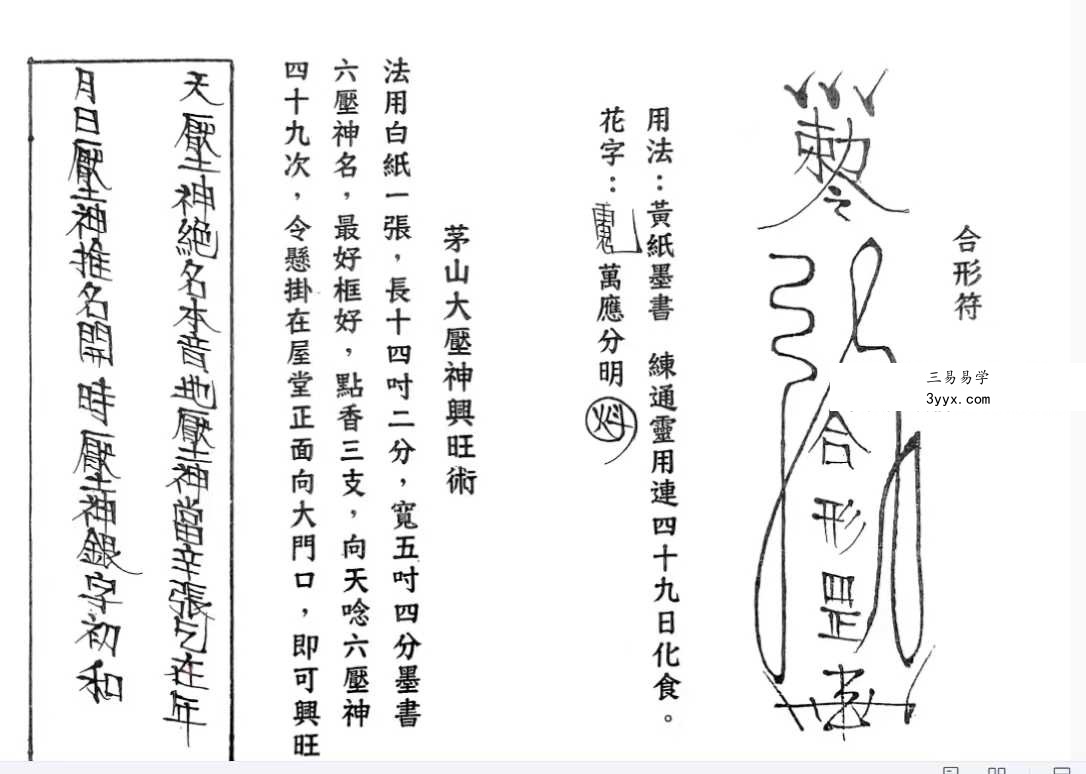 合形符
敕令
合形罡
用法：黃紙墨書　練通靈用連四十九日化食。
花字：萬應分明
茅山大壓神興旺術
法用白紙一張，長十四吋二分，寬五吋四分墨書
六壓神名，最好框好，點香三支，向天唸六壓神
四十九次，令懸掛在屋堂正面向大門口，即可興旺
天壓神絕名本音地壓神當辛張乞在年
月日壓神推名開時壓神銀字初和
三易易学
3yyx.com